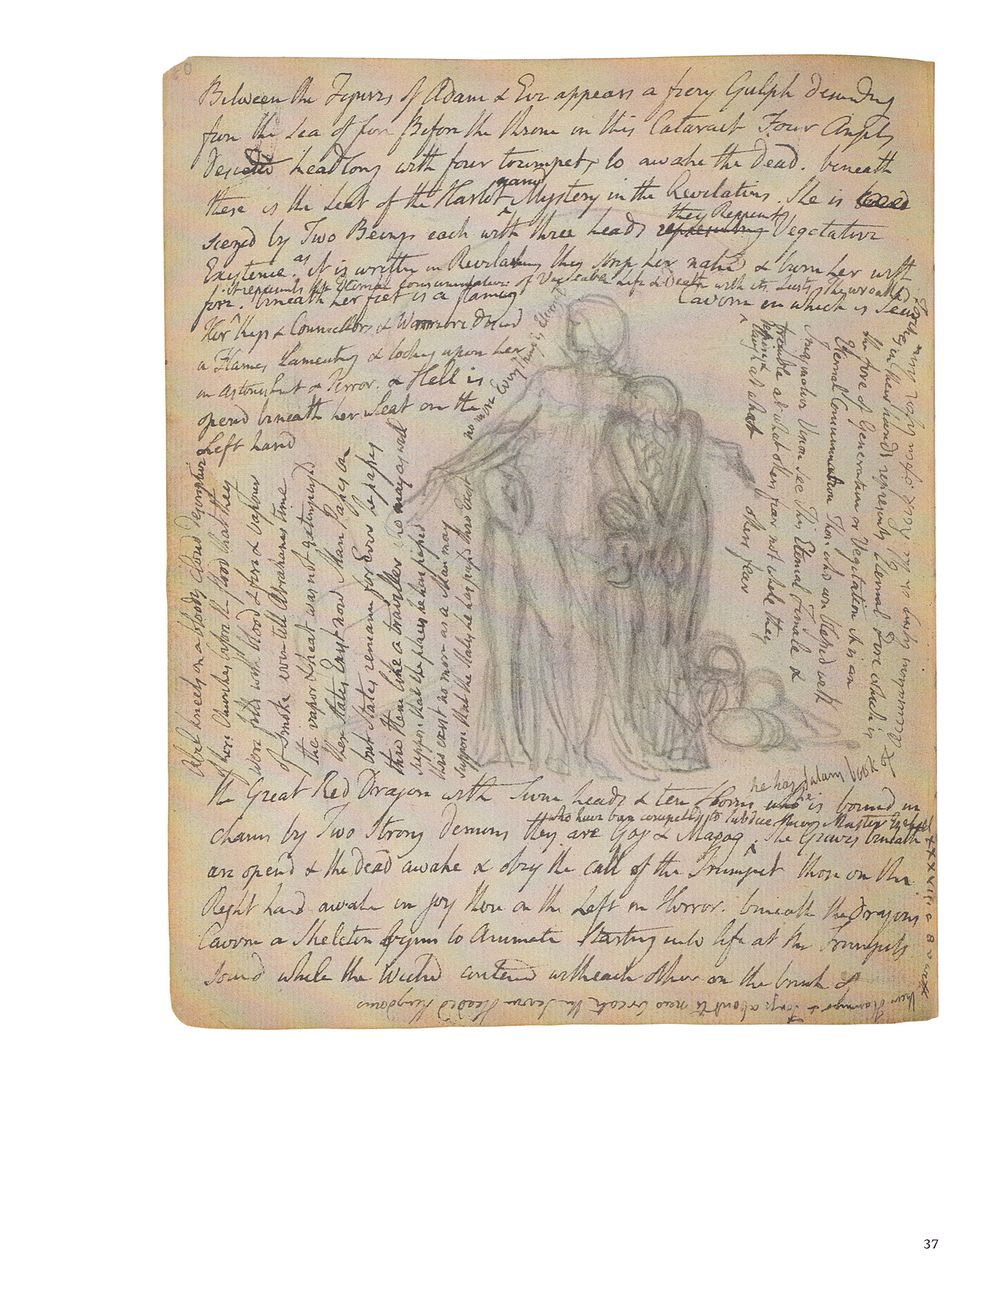 Between the Figures of Adam & Eve appears a fiery Gulph descending
from the sea of fire Before the throne in this Cataract Four Angels
descend headlong with four trumpets to awake the Dead. beneath
these is the Seat of the Harlot named Mystery in the Revelations. She is
siezed by Two Beings each with three heads they Represent Vegetative
Existence. as it is written in Revelations they strip her naked & burn her with
fire it represents the Eternal Consummation of Vegetable Life & Death with its Lusts The wreathed
Torches in their hands represents Eternal Fire which is
the fire of Generation or Vegetation it is an
Eternal Consummation Those who are blessed with
Imaginative Vision see This Eternal Female &
tremble at what others fear not while they
laugh at what others fear
beneath her feet is a flaming Cavern in which is seen
Her Kings & Councellors & Warriors descending
in Flames Lamenting & looking upon her
in astonishment & Terror. & Hell is
opend beneath her Seat on the
Left hand
Abel kneels on a bloody Cloud descriptive
of those Churches before the flood that they
were filld with blood & fire & vapour
of smoke even till Abrahams time
the vapor & heat was not extinguishd
these States Exist now Man Passes on
but States remain for Ever he passes
thro them like a traveller who may as well
suppose that the places he has passed
thro exist no more as a Man may
suppose that the States he has passd thro Exist
no more Every thing is Eternal
the Great Red Dragon with seven heads & ten Horns
he has Satans book of Accusations lying on the rock open before him
he is bound in
chains by Two strong demons they are Gog & Magog
who have been compelled to subdue their Master
The Graves beneath
are opend & the Dead awake & obey the call of the Trumpet those on the
Right hand awake in joy those on the Left in Horror. beneath the Dragons
Cavern a Skeleton begins to Animate starting into life at the Trumpets
sound while the Wicked contend with each other on the brink of
their Hammer & Tongs about to new create the Seven Headed Kingdoms
37